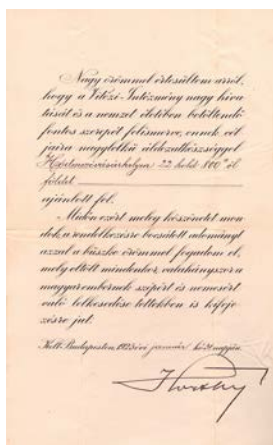 Nagy örömmel értesültem arról,
hogy a Vitézi-Intézmény nagy hiva
tását és a nemzet életében betöltendő
fontos szerepét felismerve, ennek cél
jaira nagylelkű áldozatkészséggel
Hódmezővásárhelyen 22 hold 800 □ öl
földet
ajánlott fel.
Midőn ezért meleg köszönetet mon
dok, a rendelkezésre bocsátott adományt
azzal a büszke örömmel fogadom el,
mely eltölt mindenkor, valahányszor a
magyar embernek szépért és nemesért
való lelkesedése tettekben is kifeje
zésre jut.
Kelt Budapesten, 1923 évi január hó 17 napján.
Horthy